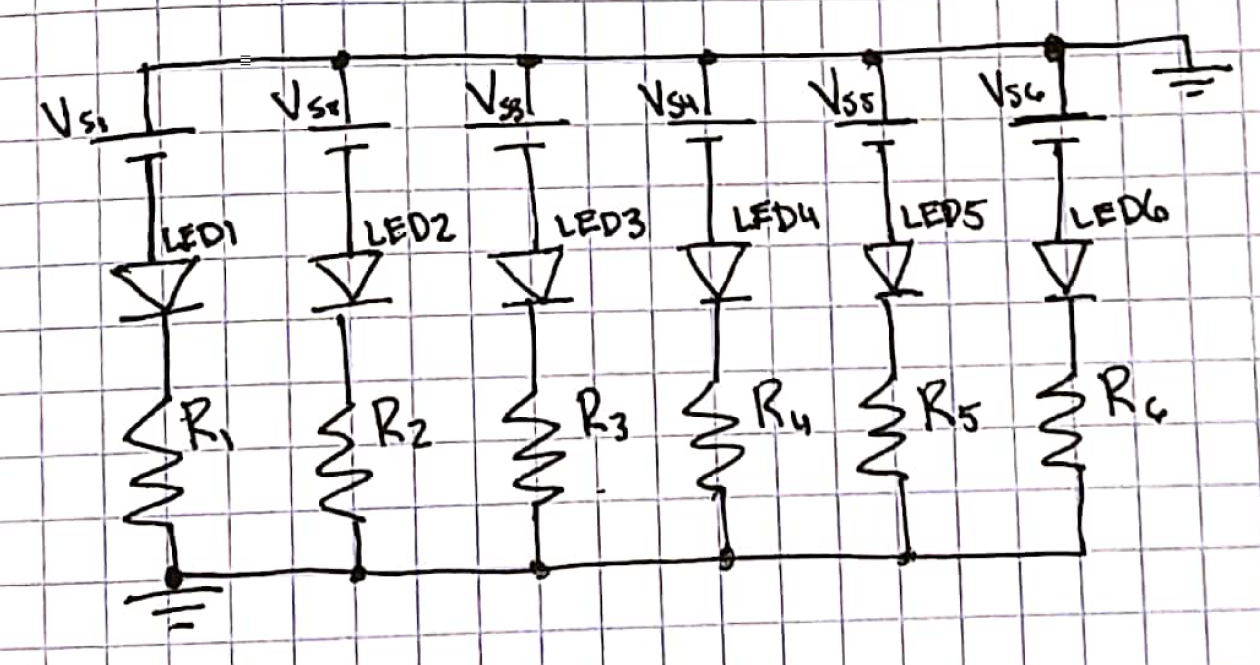 Vs1 Vs2 Vs3 Vs4 Vs5 Vs6
LED1 LED2 LED3 LED4 LED5 LED6
R1 R2 R3 R4 R5 R6